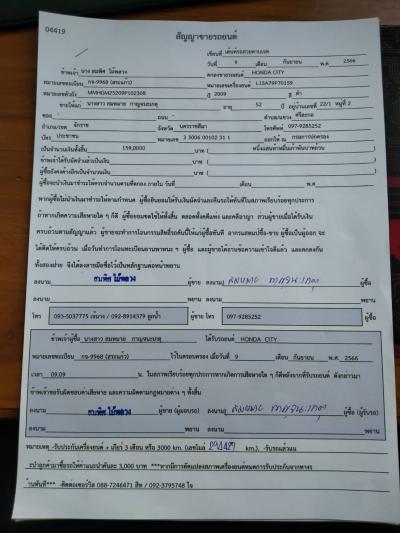 04419
สัญญาขายรถยนต์
เขียนที่ เต็นท์รถสวยคาบเนค
วันที่ 9 เดือน กันยายน พ.ศ. 2566
ข้าพเจ้า นาง สมพิศ ไม้พลวง ตกลงขายรถยนต์ HONDA CITY
หมายเลขทะเบียน กจ-9968 (สระแก้ว) หมายเลขเครื่องยนต์ L15A79P70159
หมายเลขตัวถัง MMHGM25209P102308 ปี 2009 สี ดำ
ขายให้แก่ นางสาว สมหมาย กาญจนะเกตุ อายุ 52 ปี อยู่บ้านเลขที่ 22/1 หมู่ที่ 2
ซอย - ถนน - ตำบล/แขวง ศรีละกอ
อำเภอ/เขต จักราช จังหวัด นครราชสีมา โทรศัพท์ 097-9285252
บัตร ประชาชน หมายเลข 3 3006 00102 31 1 ออกให้ ณ กรมการปกครอง
เป็นจำนวนเงินทั้งสิ้น 159,0000 บาท ( หนึ่งแสนห้าหมื่นเก้าพันบาทถ้วน )
ข้าพเจ้าได้รับมัดจำแล้วเป็นเงิน บาท ( )
ผู้ซื้อยังคงค้างอีกเป็นจำนวนเงิน บาท ( )
ผู้ซื้อจะนำเงินมาชำระให้ครบจำนวนตามที่ตกลง ภายใน วันที่ เดือน พ.ศ.
หากผู้ซื้อไม่นำเงินมาชำระให้ตามกำหนด ผู้ซื้อยินยอมให้ริบเงินมัดจำและคืนรถให้ทันทีในสภาพเรียบร้อยทุกประการ
ถ้าหากเกิดความเสียหายใด ๆ ก็ดี ผู้ซื้อยอมชดใช้ให้ทั้งสิ้น ตลอดทั้งคดีแพ่ง และคดีอาญา ส่วนผู้ขายเมื่อได้รับเงิน
ครบถ้วนตามสัญญาแล้ว ผู้ขายจะทำการโอนกรรมสิทธิ์รถคันนี้ให้แก่ผู้ซื้อทันที อากรแสตมป์ซื้อ-ขาย ผู้ซื้อเป็นผู้ออก จะ
ได้คิดให้ครบถ้วน เมื่อวันทำการโอนทะเบียนยานพาหนะ ฯ ผู้ซื้อ และผู้ขายได้อ่านข้อความเข้าใจดีแล้ว และตกลงกัน
ทั้งสองฝ่าย จึงได้ลงลายมือชื่อไว้เป็นหลักฐานต่อหน้าพยาน
ลงนาม สมพิศ ไม้พลวง ผู้ขาย ลงนาม สมหมาย กาญจนะเกตุ ผู้ซื้อ
ลงนาม พยาน ลงนาม พยาน
โทร 093-5037775 เจ๊นาง / 092-8914379 ลูกน้ำ ผู้ขาย โทร 097-9285252 ผู้ซื้อ
ข้าพเจ้าผู้ซื้อ นางสาว สมหมาย กาญจนะเกตุ ได้รับรถยนต์ HONDA CITY
หมายเลขทะเบียน กจ-9968 (สระแก้ว) ไว้ในครอบครอง เมื่อวันที่ 9 เดือน กันยายน พ.ศ. 2566
เวลา 09.09 น. ในสภาพเรียบร้อยทุกประการหากเกิดการเสียหายใด ๆ ก็ดีหลังจากที่รับรถยนต์ ดังกล่าวมา
ข้าพเจ้าขอรับผิดชอบค่าเสียหาย และความผิดตามกฎหมายต่าง ๆ ทั้งสิ้น
ลงนาม สมพิศ ไม้พลวง ผู้ขาย (ผู้มอบรถ) ลงนาม สมหมาย กาญจนะเกตุ ผู้ซื้อ (ผู้รับรถ)
ลงนาม พยาน ลงนาม พยาน
หมายเหตุ -รับประกันเครื่องยนต์ + เกียร์ 3 เดือน หรือ 3000 km. (เลขไมล์ km.) -รับรถแล้ว
แนะนำลูกค้ามาซื้อรถให้ค่าแนะนำคันละ 3,000 บาท ***หากมีการดัดแปลงสภาพเครื่องยนต์หมดการรับประกันจากทาง
ร้านทันที*** -ติดต่อเซอร์วิส 088-7246471 สิพ / 092-3795748 ใจ